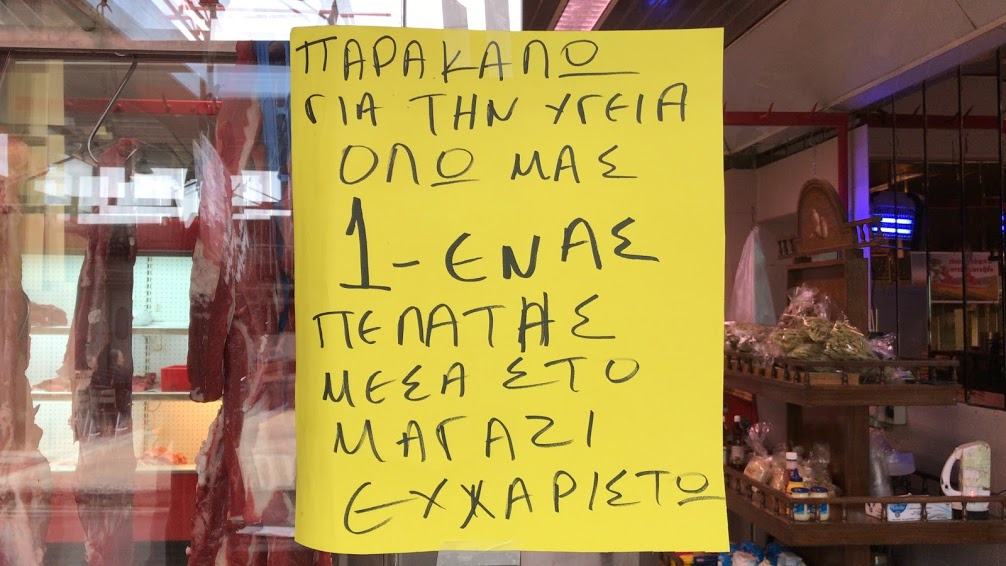 ΠΑΡΑΚΑΛΩ
ΓΙΑ ΤΗΝ ΥΓΕΙΑ
ΟΛΩ ΜΑΣ
1-ΕΝΑΣ
ΠΕΛΑΤΗΣ
ΜΕΣΑ ΣΤΟ
ΜΑΓΑΖΙ
ΕΥΧΑΡΙΣΤΩ